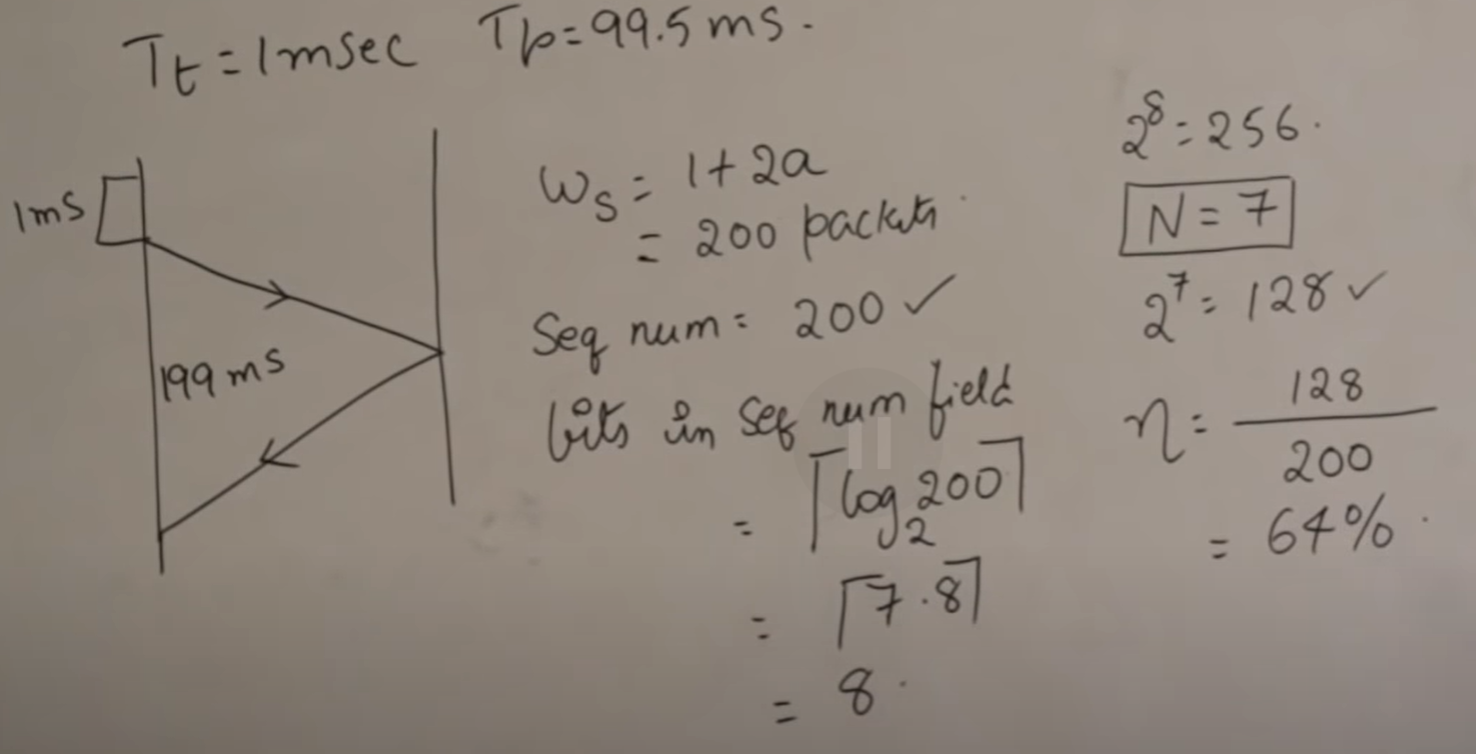 Tt = 1msec Tp = 99.5 ms.
1ms
199 ms
Ws = 1 + 2a
= 200 packets
Seq num = 200 ✓
bits in seq num field
= ⌈log₂200⌉
= ⌈7.8⌉
= 8.
2⁸ = 256.
N = 7
2⁷ = 128 ✓
η = 128/200
= 64%.